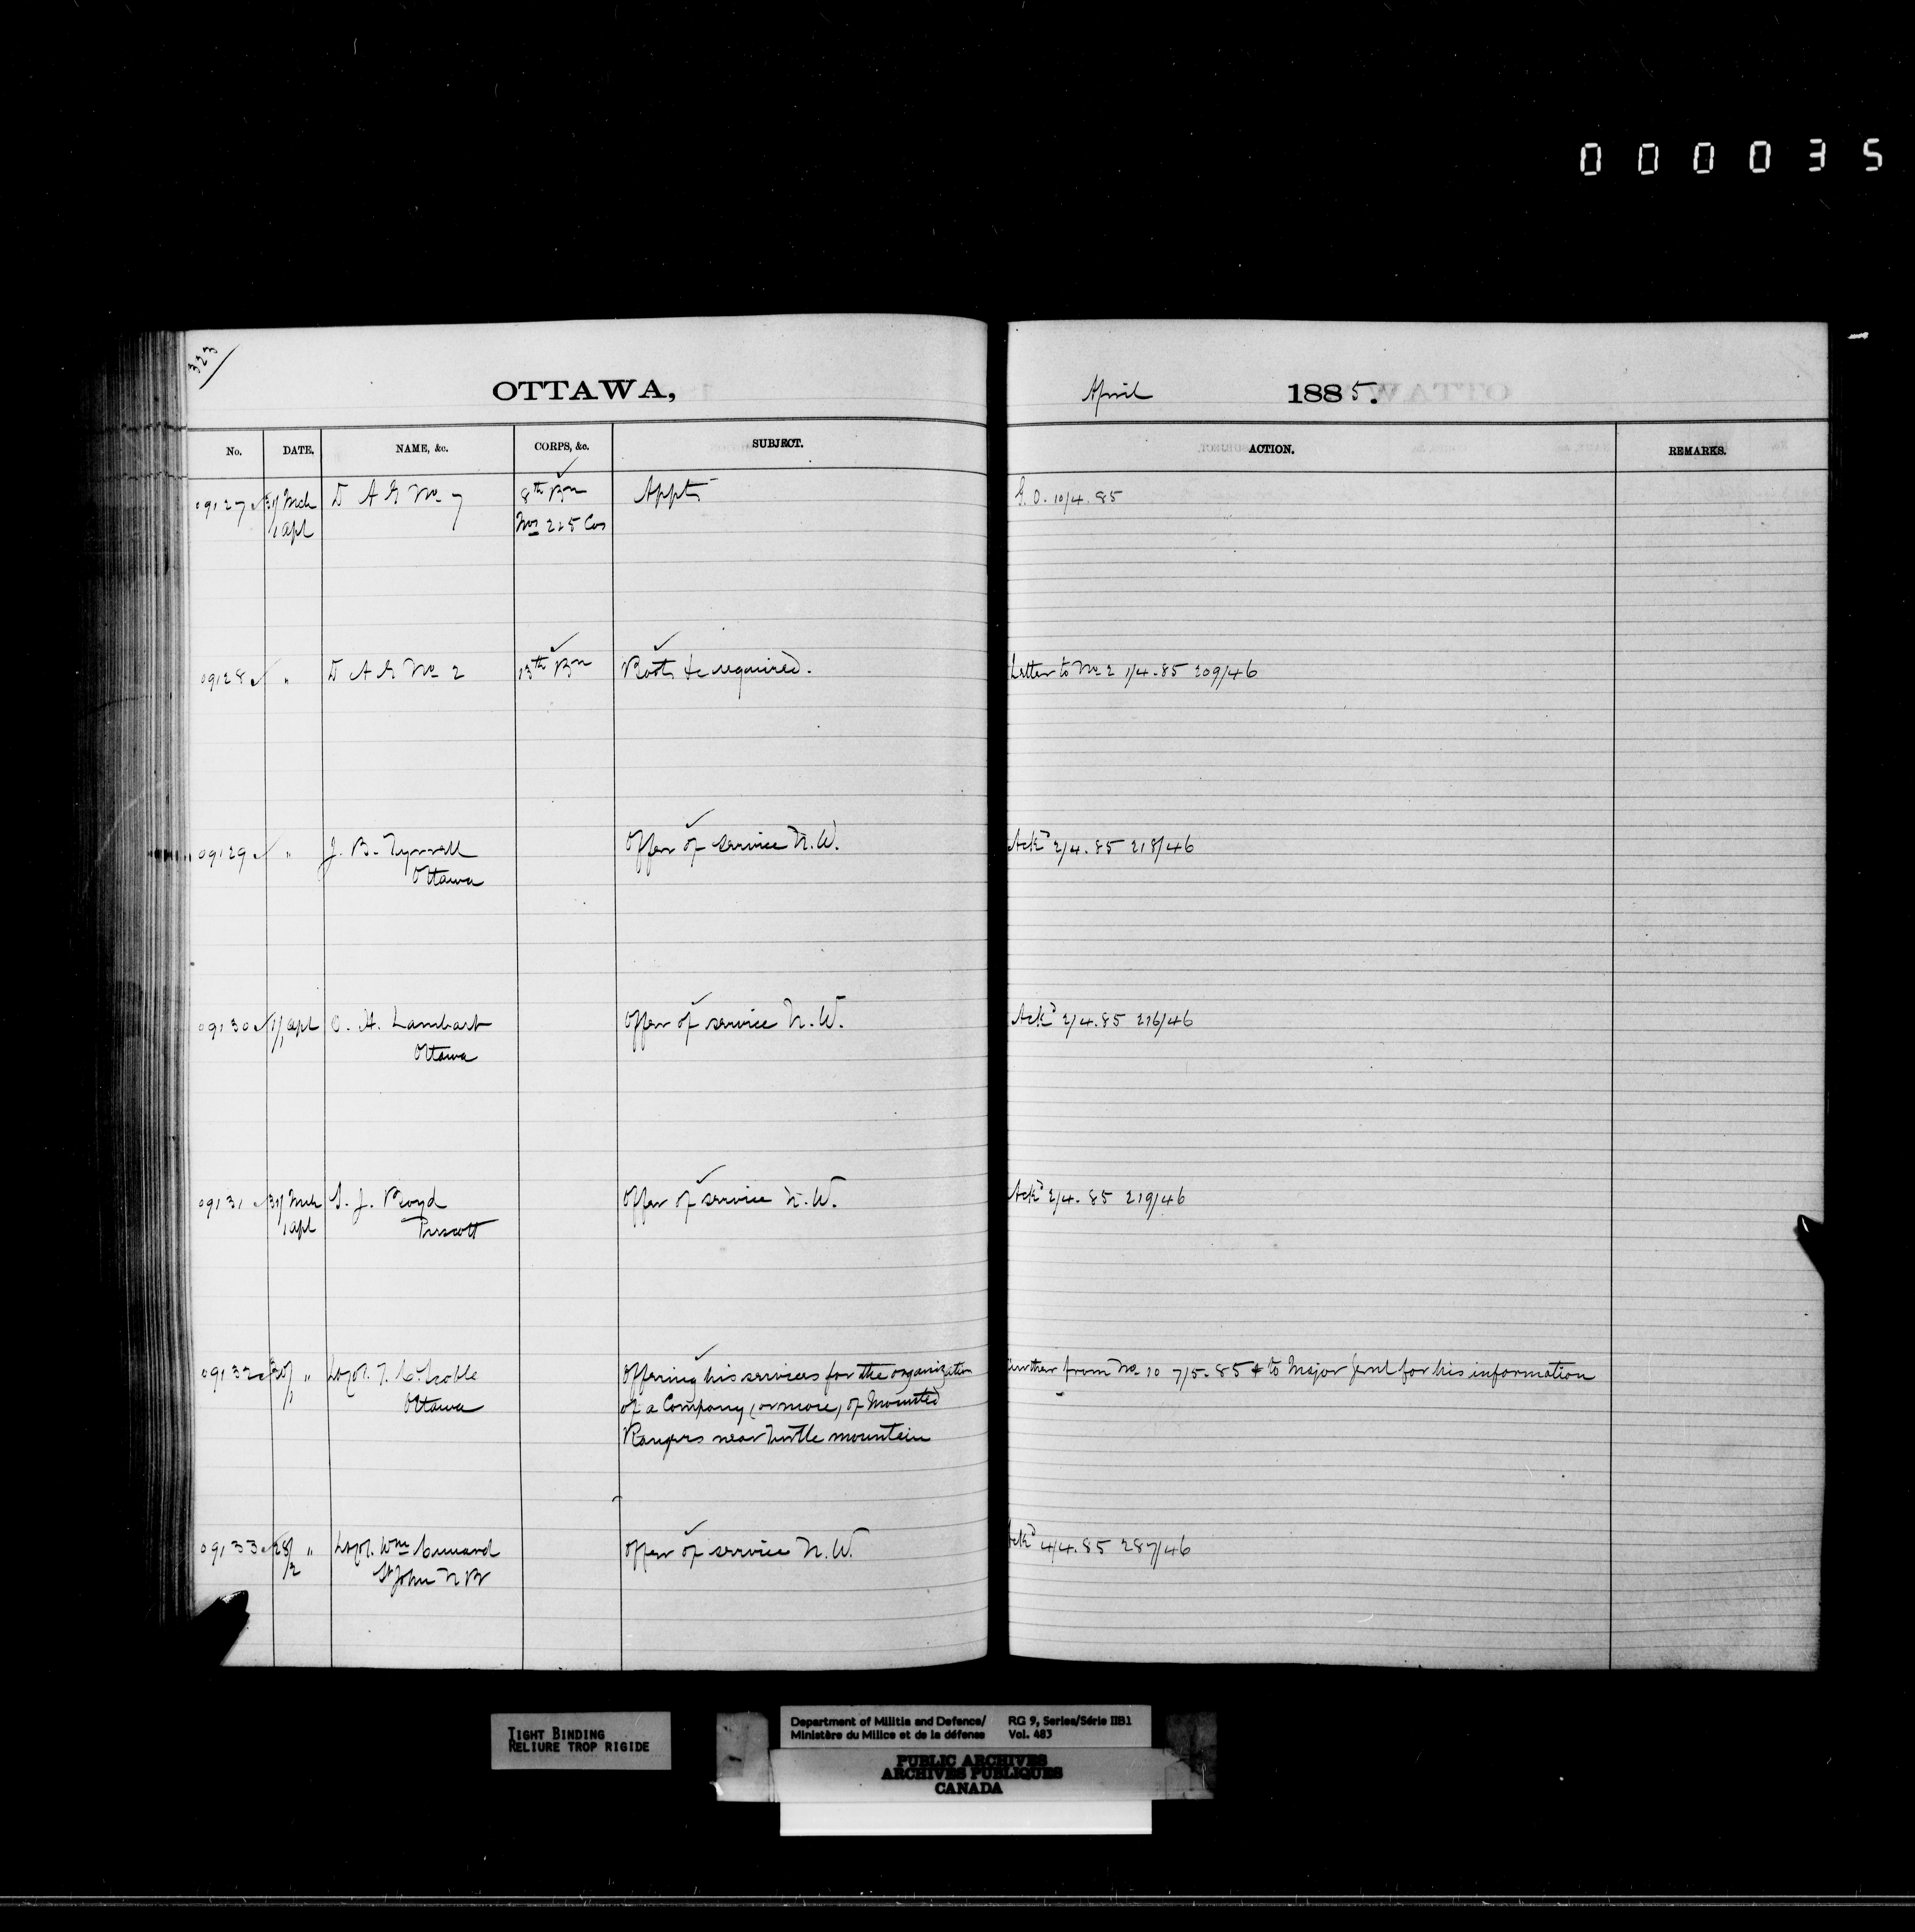 000035
323
OTTAWA, April 1885.
No. DATE. NAME, &c. CORPS, &c. SUBJECT. ACTION. REMARKS.
09127 31/ Mch D A G No 7 8th Bn Appts G. O. 10/4.85
1 Apl Nos 2 & 5 Cos
09128 " D A G No 2 13th Bn Boots &c required. Letter to No 2 1/4.85 209/46
09129 " J. B. Tyrrell Offer of service N.W. Ackd 2/4.85 218/46
Ottawa
09130 1/1 Apl O. H. Lambart Offer of service N.W. Ackd 2/4.85 216/46
Ottawa
09131 31/ Mch S. J. Boyd Offer of service N.W. Ackd 2/4.85 219/46
1 Apl Prescott
09132 30/1 " Offering his services for the organization further from No 10 7/5.85 & to Major Genl for his information
Ottawa of a Company, (or more) of Mounted
Rangers near Turtle mountain
09133 28/2 " Lt Col. Wm Cunard Offer of service N.W. Ackd 4/4.85 287/46
St John N B
TIGHT BINDING
RELIURE TROP RIGIDE
Department of Militia and Defence/ RG 9, Series/Série IIB1
Ministère du Milice et de la défense Vol. 483
PUBLIC ARCHIVES
ARCHIVES PUBLIQUES
CANADA